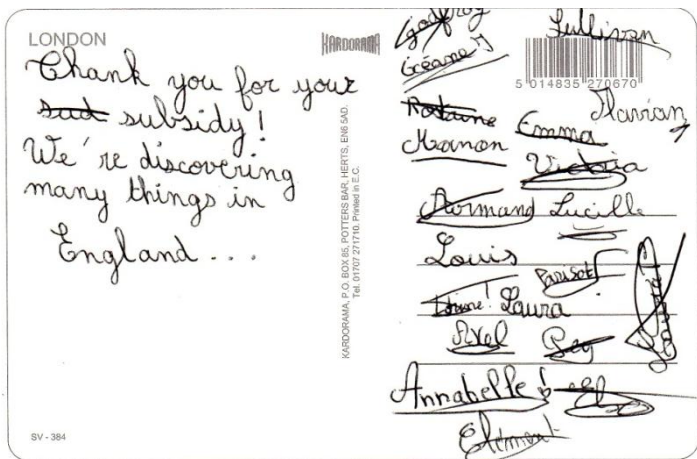 LONDON
KARDORAMA
Thank you for your
sad subsidy !
We're discovering
many things in
England . . .
SV - 384
KARDORAMA, P.O. BOX 85, POTTERS BAR, HERTS, EN6 5AD.
Tel. 01707 271710. Printed in E.C.
Godfroy
Sullivan
Océane
5 014835 270670
Emma
Manon
Victoria
Armand Lucille
Louis
Parisot
Laura
Axel
Annabelle !
Clément